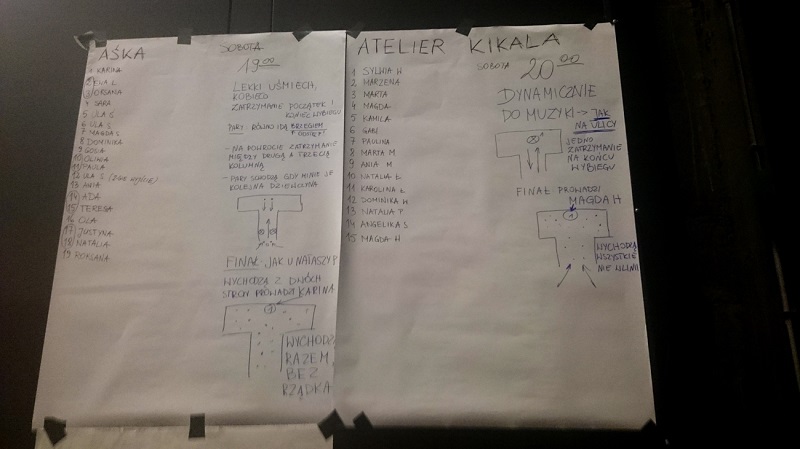 AŚKA
SOBOTA
19 00
1 KARINA
2 EWA Ł
3 ORSANA
4 SARA
5 ULA G
6 ULA S
7 MAGDA S
8 DOMINIKA
9 GOSIA
10 OLIWIA
11 PAULA
12 ULA S
13 ANIA
14 ADA
15 TERESA
16 OLA
17 JUSTYNA
18 NATALIA
19 ROKSANA
LEKKI UŚMIECH,
KOBIECO
ZATRZYMANIE POCZĄTEK I
KONIEC WYBIEGU
PARY: RÓWNO IDĄ BRZEGIEM
- NA POWROCIE ZATRZYMANIE
MIĘDZY DRUGĄ A TRZECIĄ
KOLUMNĄ
- PARY SCHODZĄ GDY MINIE JE
KOLEJNA DZIEWCZYNA
FINAŁ JAK U NATASZY P
WYCHODZĄ Z DWÓCH
STRON PROWADZI KARINA
1
WYCHODZĄ
RAZEM
BEZ
RZĄDKA
ATELIER KIKALA
SOBOTA 20 00
1 SYLWIA H
2 MARZENA
3 MARTA
4 MAGDA
5 KAMILA
6 GABI
7 PAULINA
8 MARTA M
9 ANIA M
10 NATALIA Ł
11 KAROLINA Ł
12 DOMINIKA H
13 NATALIA T
14 ANGELIKA S
15 MAGDA H
DYNAMICZNIE
DO MUZYKI → JAK
NA ULICY
JEDNO
ZATRZYMANIE
NA KOŃCU
WYBIEGU
FINAŁ PROWADZI
MAGDA H
1
WYCHODZĄ
WSZYSTKIE
NIE W LINII